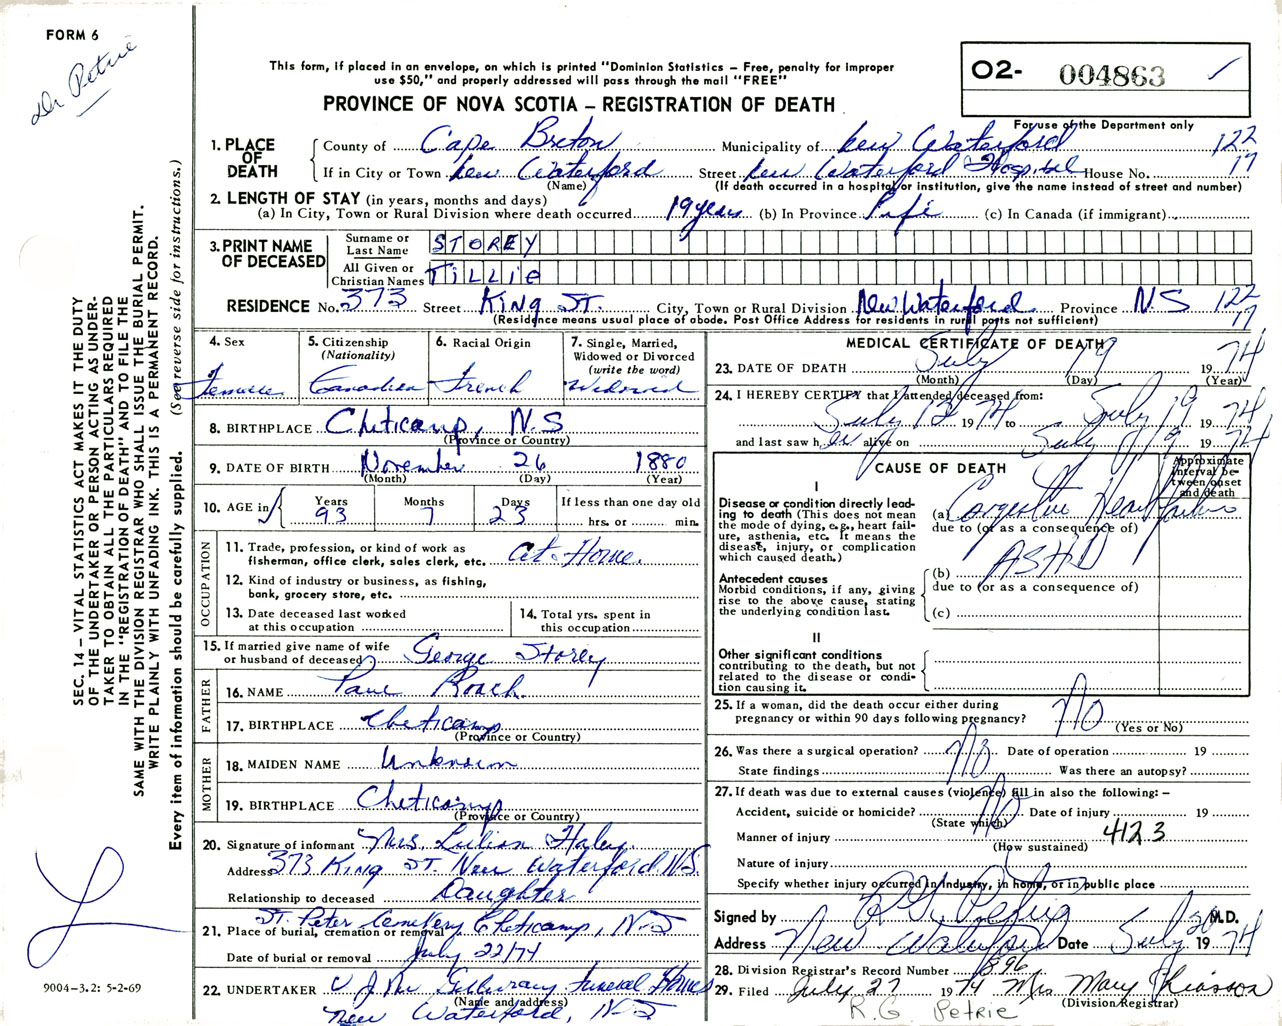 FORM 6
Dr Petrie
This form, if placed in an envelope, on which is printed "Dominion Statistics – Free, penalty for improper
use $50," and properly addressed will pass through the mail "FREE"
PROVINCE OF NOVA SCOTIA – REGISTRATION OF DEATH
O2- 004863 ✓
For use of the Department only
1. PLACE OF DEATH
County of Cape Breton Municipality of New Waterford 122
If in City or Town New Waterford Street New Waterford Hospital House No. 17
(Name) (If death occurred in a hospital or institution, give the name instead of street and number)
2. LENGTH OF STAY (in years, months and days)
(a) In City, Town or Rural Division where death occurred 19 years (b) In Province Life (c) In Canada (if immigrant)
3. PRINT NAME OF DECEASED
Surname or Last Name STOREY
All Given or Christian Names TILLIE
RESIDENCE No. 373 Street King St. City, Town or Rural Division New Waterford Province N.S 122
(Residence means usual place of abode. Post Office Address for residents in rural parts not sufficient) 17
4. Sex 5. Citizenship (Nationality) 6. Racial Origin 7. Single, Married, Widowed or Divorced (write the word)
Female Canadian French Widowed
8. BIRTHPLACE Cheticamp, N.S
(Province or Country)
9. DATE OF BIRTH November 26 1880
(Month) (Day) (Year)
10. AGE in Years 93 Months 7 Days 23 If less than one day old
hrs. or min.
OCCUPATION
11. Trade, profession, or kind of work as
fisherman, office clerk, sales clerk, etc. At Home.
12. Kind of industry or business, as fishing,
bank, grocery store, etc.
13. Date deceased last worked
at this occupation
14. Total yrs. spent in
this occupation
15. If married give name of wife
or husband of deceased George Storey
FATHER
16. NAME Paul Roach
17. BIRTHPLACE Cheticamp
(Province or Country)
MOTHER
18. MAIDEN NAME Unknown
19. BIRTHPLACE Cheticamp
(Province or Country)
20. Signature of informant Mrs. Lillian Haley
Address 373 King St. New Waterford N.S.
Relationship to deceased Daughter
St. Peter Cemetery Cheticamp, N.S
21. Place of burial, cremation or removal
Date of burial or removal July 22/74
22. UNDERTAKER V J Mc Gillivary Funeral Homes
(Name and address)
New Waterford, N.S
MEDICAL CERTIFICATE OF DEATH
23. DATE OF DEATH July 19 1974
(Month) (Day) (Year)
24. I HEREBY CERTIFY that I attended deceased from:
July 13 1974 to July 19 1974
and last saw her alive on July 19 1974
CAUSE OF DEATH
Approximate interval between onset and death
I
Disease or condition directly leading to death (This does not mean
the mode of dying, e.g., heart failure, asthenia, etc. It means the
disease, injury, or complication
which caused death.)
(a) Congestive Heart failure
due to (or as a consequence of)
ASHD
Antecedent causes
Morbid conditions, if any, giving
rise to the above cause, stating
the underlying condition last.
(b)
due to (or as a consequence of)
(c)
II
Other significant conditions
contributing to the death, but not
related to the disease or condition causing it.
25. If a woman, did the death occur either during
pregnancy or within 90 days following pregnancy? No
(Yes or No)
26. Was there a surgical operation? No Date of operation 19
State findings Was there an autopsy?
27. If death was due to external causes (violence) fill in also the following: –
Accident, suicide or homicide? No Date of injury 19
(State which)
Manner of injury 412.3
(How sustained)
Nature of injury
Specify whether injury occurred in industry, in home, or in public place
Signed by R G Petrie M.D.
Address New Waterford Date July 20 1974
28. Division Registrar's Record Number 896
29. Filed July 27 1974 Mrs Mary Chiasson
(Division Registrar)
R.G. PETRIE
SEC. 14 – VITAL STATISTICS ACT MAKES IT THE DUTY
OF THE UNDERTAKER OR PERSON ACTING AS UNDER-
TAKER TO OBTAIN ALL THE PARTICULARS REQUIRED
IN THE "REGISTRATION OF DEATH" AND TO FILE THE
SAME WITH THE DIVISION REGISTRAR WHO SHALL ISSUE THE BURIAL PERMIT.
WRITE PLAINLY WITH UNFADING INK. THIS IS A PERMANENT RECORD.
Every item of information should be carefully supplied. (See reverse side for instructions.)
9004-3.2: 5-2-69